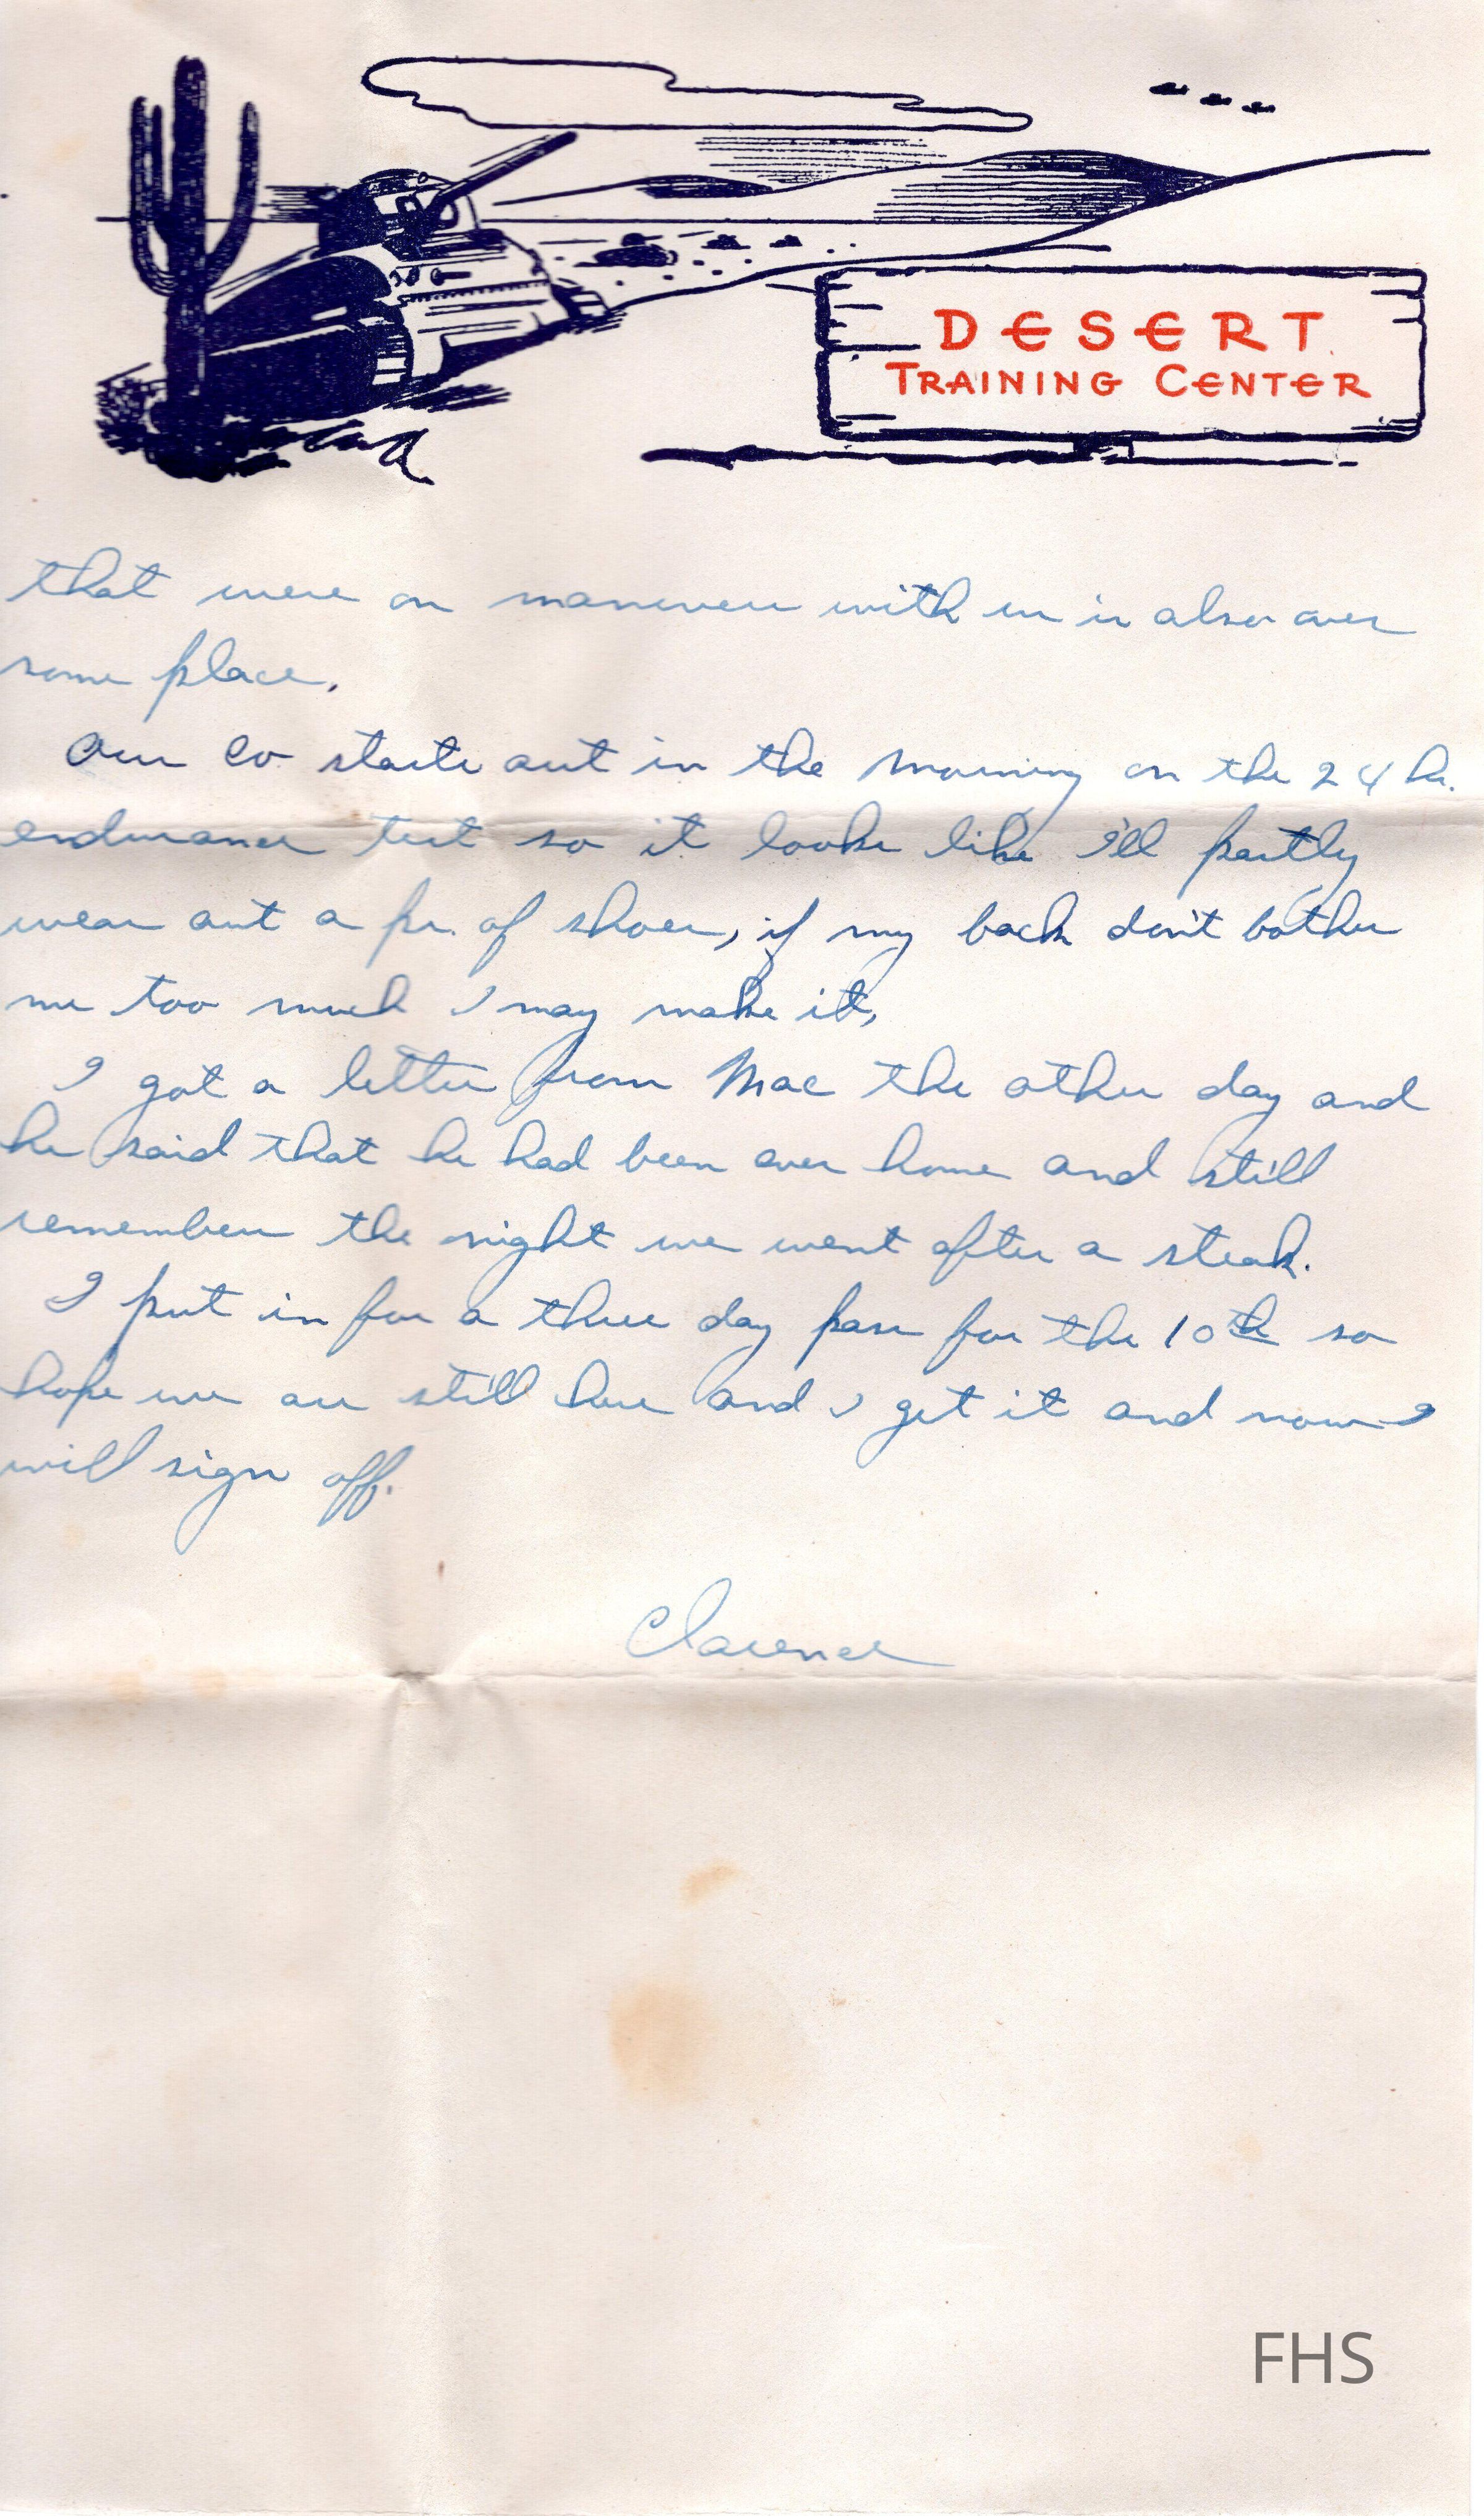 DESERT
TRAINING CENTER
that were on maneuvers with us is also over
some place.
Our Co starts out in the morning on the 24 hr.
endurance test so it looks like I'll partly
wear out a pr. of shoes, if my back don't bother
me too much I may make it,
I got a letter from Mac the other day and
he said that he had been over home and still
remembers the night we went after a steak.
I put in for a three day pass for the 10th so
hope we are still here and I get it and now I
will sign off.
Clarence
FHS